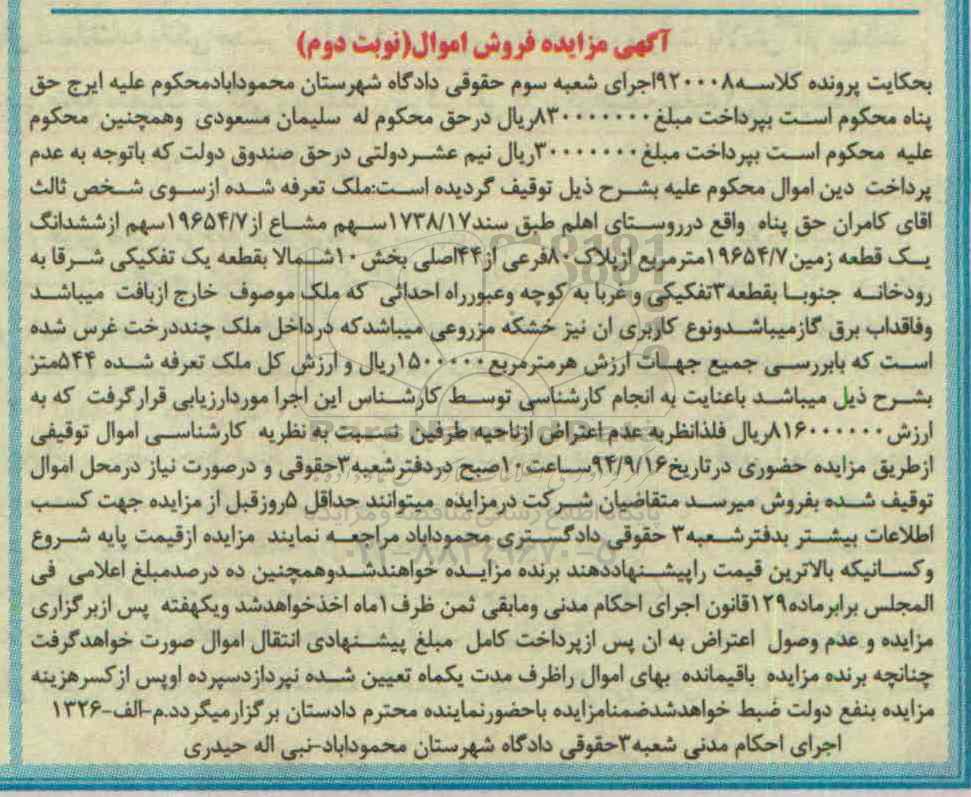 آگهی مزایده فروش اموال(نوبت دوم)
بحکایت پرونده کلاسه۹۲۰۰۰۸اجرای شعبه سوم حقوقی دادگاه شهرستان محمودابادمحکوم علیه ایرج حق
پناه محکوم است بپرداخت مبلغ۸۳۰۰۰۰۰۰۰ریال درحق محکوم له سلیمان مسعودی وهمچنین محکوم
علیه محکوم است بپرداخت مبلغ۳۰۰۰۰۰۰۰ریال نیم عشردولتی درحق صندوق دولت که باتوجه به عدم
پرداخت دین اموال محکوم علیه بشرح ذیل توقیف گردیده است:ملک تعرفه شده ازسوی شخص ثالث
اقای کامران حق پناه واقع درروستای اهلم طبق سند۱۷۳۸/۱۷سهم مشاع از۱۹۶۵۴/۷سهم ازششدانگ
یک قطعه زمین۱۹۶۵۴/۷مترمربع ازپلاک۸۰فرعی از۴۴اصلی بخش۱۰شمالا بقطعه یک تفکیکی شرقا به
رودخانه جنوبا بقطعه۳تفکیکی و غربا به کوچه وعبورراه احداثی که ملک موصوف خارج ازبافت میباشد
وفاقداب برق گازمیباشدونوع کاربری ان نیز خشکه مزروعی میباشدکه درداخل ملک چنددرخت غرس شده
است که بابررسی جمیع جهات ارزش هرمترمربع۱۵۰۰۰۰۰ریال و ارزش کل ملک تعرفه شده ۵۴۴متز
بشرح ذیل میباشد باعنایت به انجام کارشناسی توسط کارشناس این اجرا موردارزیابی قرارگرفت که به
ارزش۸۱۶۰۰۰۰۰۰ریال فلذانظربه عدم اعتراض ازناحیه طرفین نسبت به نظریه کارشناسی اموال توقیفی
ازطریق مزایده حضوری درتاریخ۹۴/۹/۱۶ساعت۱۰صبح دردفترشعبه۳حقوقی و درصورت نیاز درمحل اموال
توقیف شده بفروش میرسد متقاضیان شرکت درمزایده میتوانند حداقل ۵روزقبل از مزایده جهت کسب
اطلاعات بیشتر بدفترشعبه۳ حقوقی دادگستری محموداباد مراجعه نمایند مزایده ازقیمت پایه شروع
وکسانیکه بالاترین قیمت راپیشنهاددهند برنده مزایده خواهندشدوهمچنین ده درصدمبلغ اعلامی فی
المجلس برابرماده۱۲۹قانون اجرای احکام مدنی ومابقی ثمن ظرف۱ماه اخذخواهدشد ویکهفته پس ازبرگزاری
مزایده و عدم وصول اعتراض به ان پس ازپرداخت کامل مبلغ پیشنهادی انتقال اموال صورت خواهدگرفت
چنانچه برنده مزایده باقیمانده بهای اموال راظرف مدت یکماه تعیین شده نپردازدسپرده اوپس ازکسرهزینه
مزایده بنفع دولت ضبط خواهدشدضمنامزایده باحضورنماینده محترم دادستان برگزارمیگردد.م-الف-۱۳۲۶
اجرای احکام مدنی شعبه۳حقوقی دادگاه شهرستان محموداباد-نبی اله حیدری